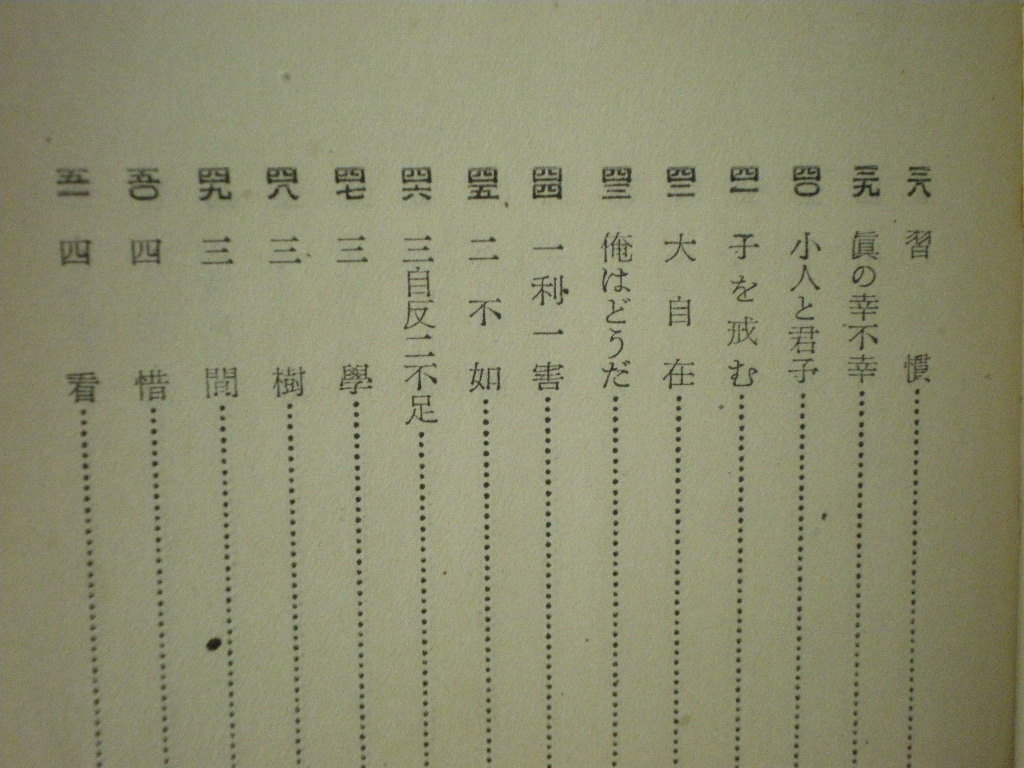 三八 習慣
三九 眞の幸不幸
四〇 小人と君子
四一 子を戒む
四二 大自在
四三 俺はどうだ
四四 一利一害
四五 二不如
四六 三自反二不足
四七 三學
四八 三樹
四九 三間
五〇 四惜
五一 四看